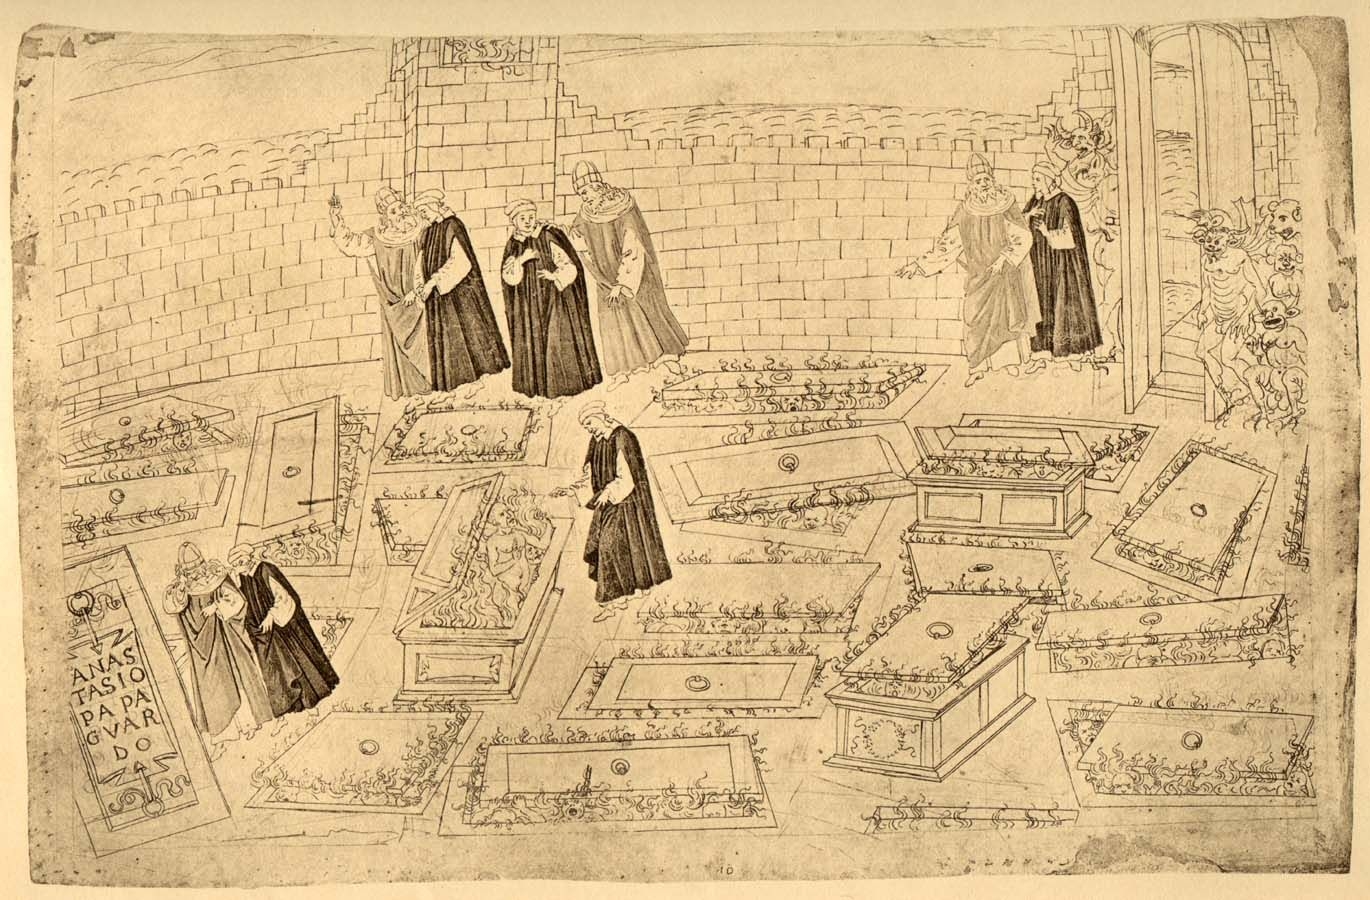 ANAS
TASIO
PA PA
GVAR
DO
10